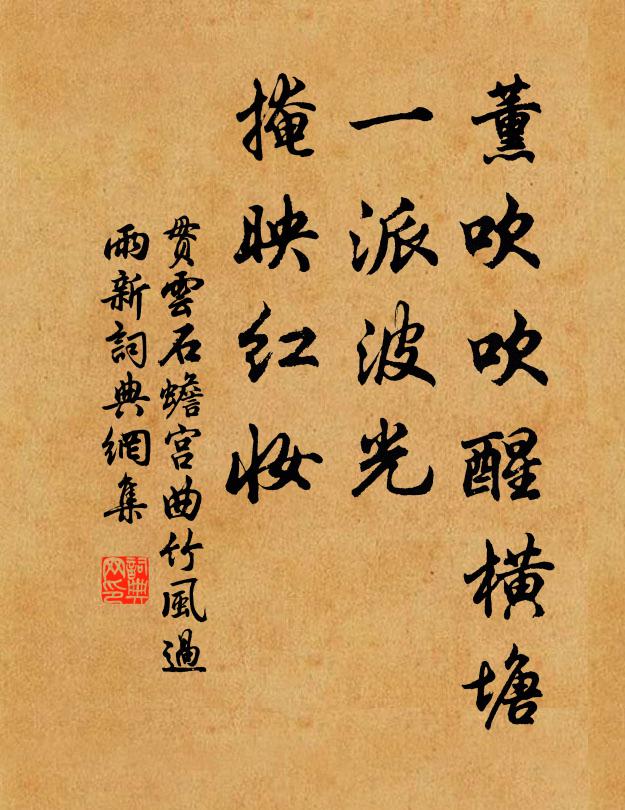 薰吹吹醒橫塘
一派波光
掩映红妆
贯雲石蟾宮曲竹風過
雨新詞典網集
詞典
网印